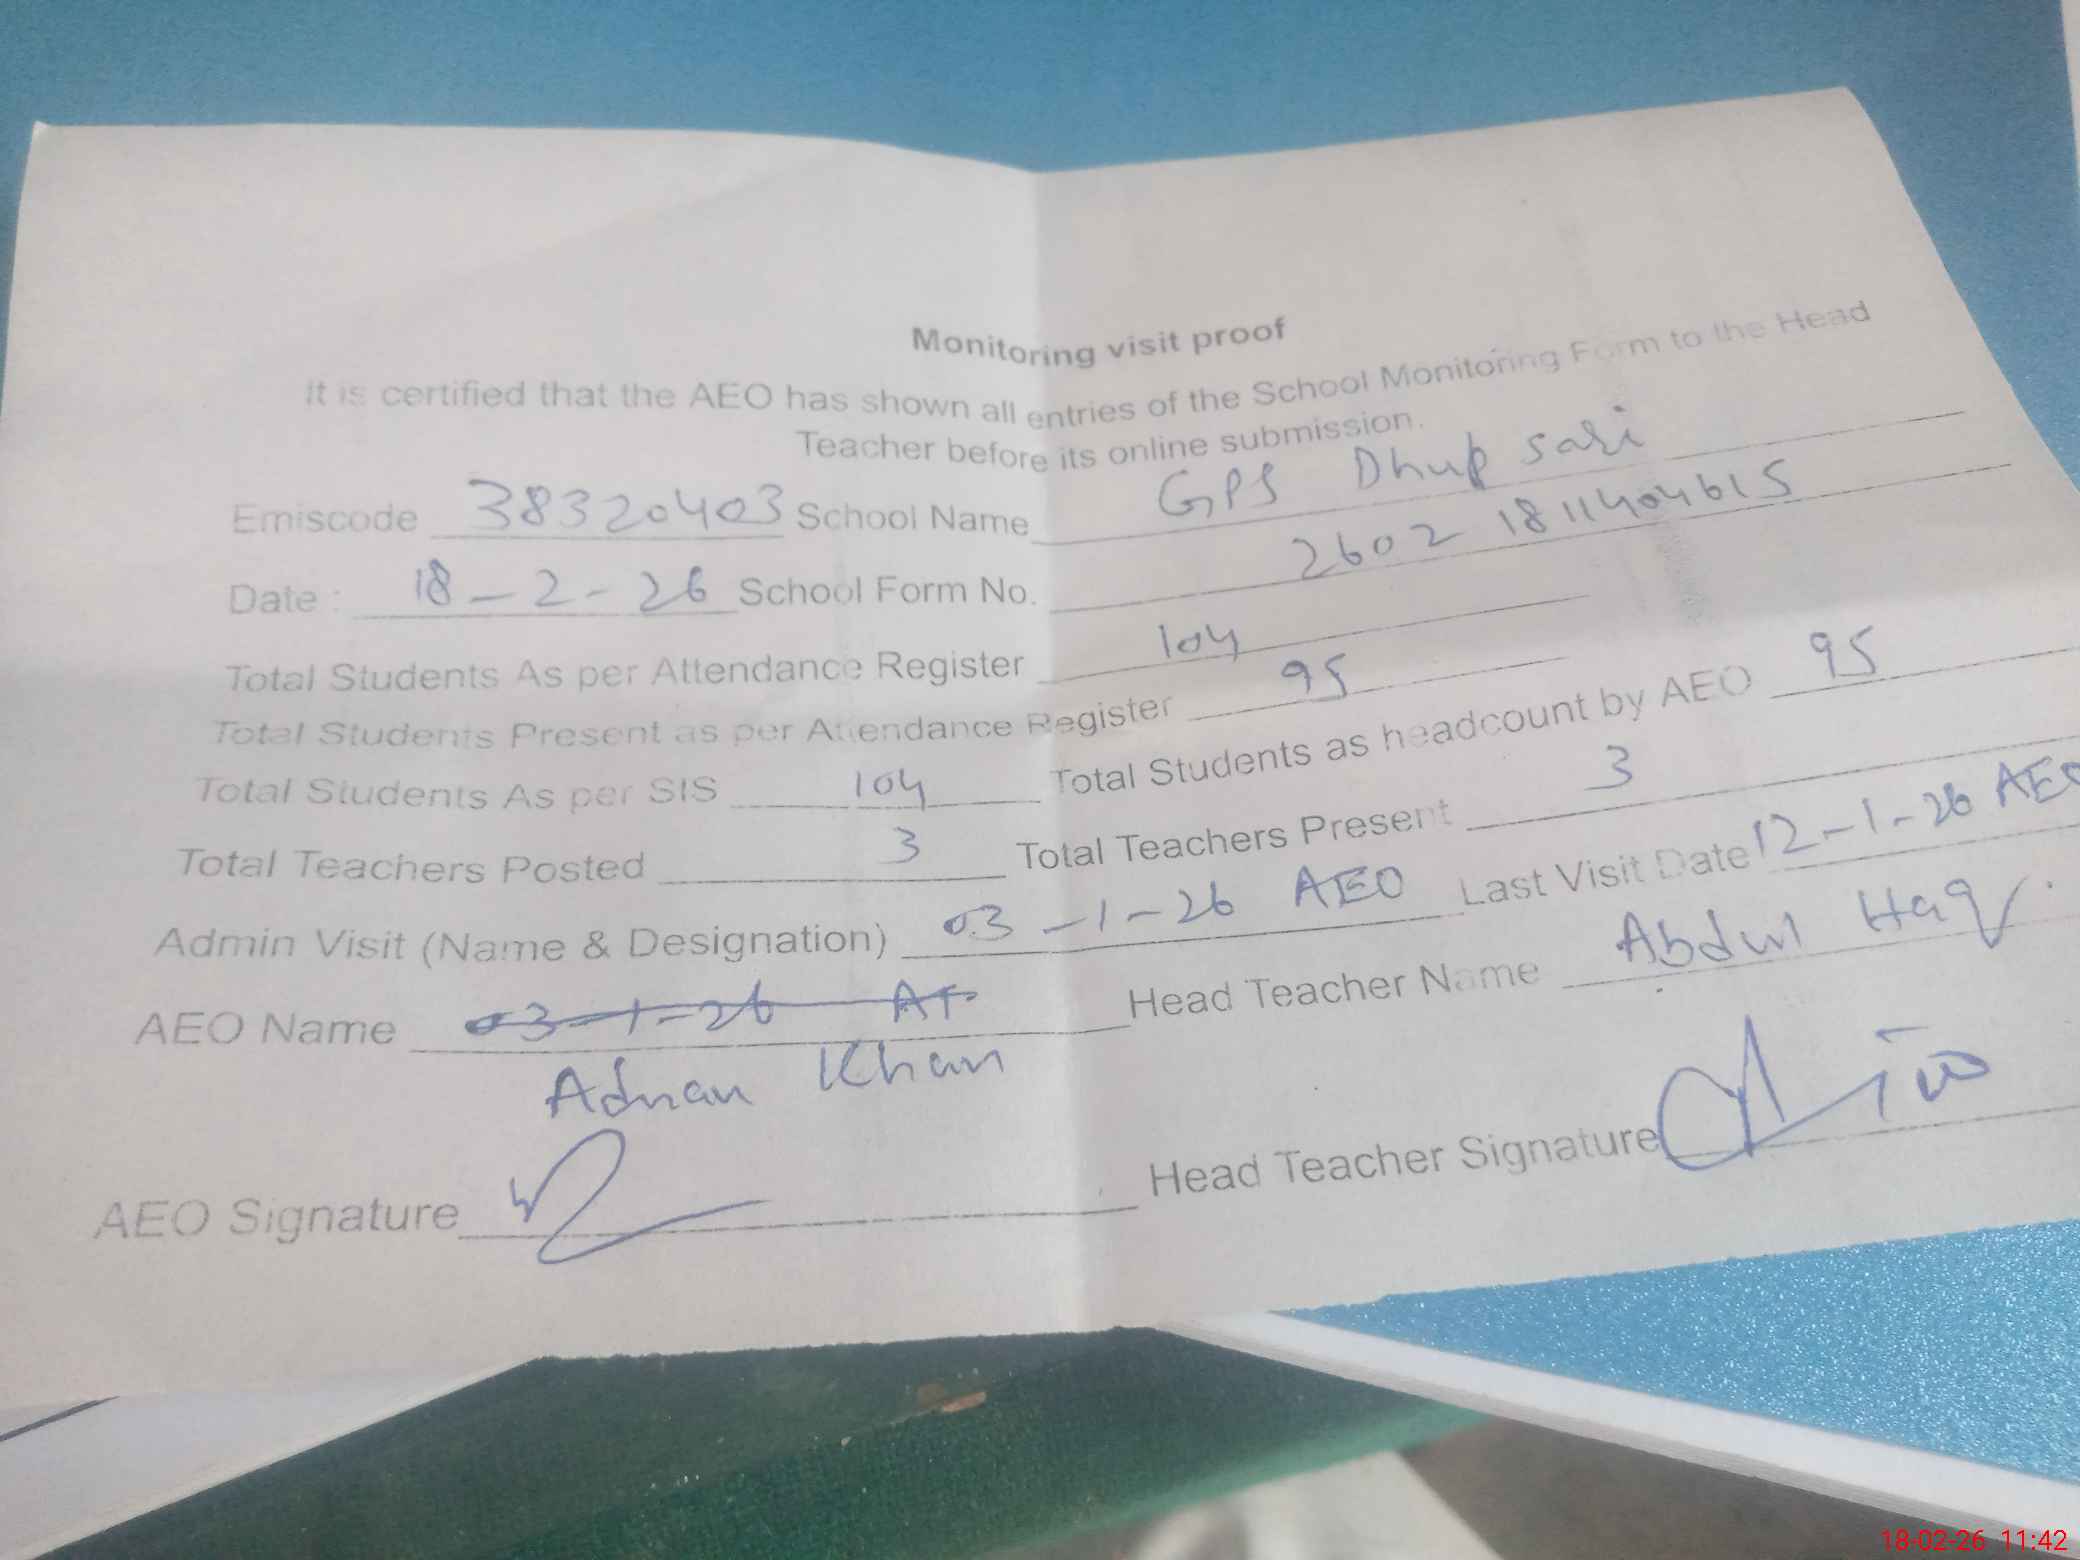 Monitoring visit proof
It is certified that the AEO has shown all entries of the School Monitoring Form to the Head
Teacher before its online submission.
Emiscode 38320403 School Name GPS Dhup sari
Date : 18-2-26 School Form No. 2602 1811404615
Total Students As per Attendance Register 104
Total Students Present as per Attendance Register 95
Total Students As per SIS 104 Total Students as headcount by AEO 95
Total Teachers Posted 3 Total Teachers Present 3
Admin Visit (Name & Designation) 03-1-26 AEO Last Visit Date 12-1-26 AEO
AEO Name 03-1-26 Head Teacher Name Abdul Haq
Adnan Khan
AEO Signature Head Teacher Signature
18-02-26 11:42